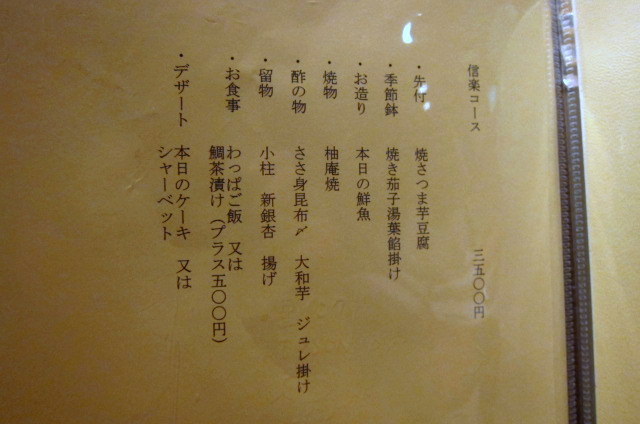 信楽コース 三五〇〇円
・先付 焼さつま芋豆腐
・季節鉢 焼き茄子湯葉餡掛け
・お造り 本日の鮮魚
・焼物 柚庵焼
・酢の物 ささ身昆布〆 大和芋 ジュレ掛け
・留物 小柱 新銀杏 揚げ
・お食事 わっぱご飯 又は
鯛茶漬け（プラス五〇〇円）
・デザート 本日のケーキ 又は
シャーベット